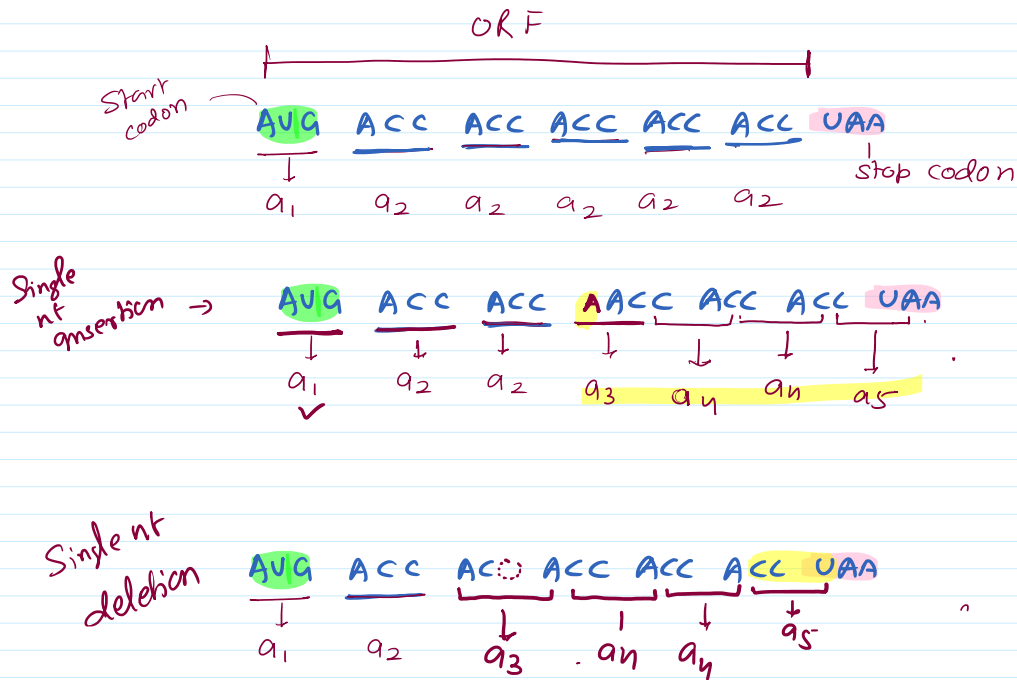 ORF
Start codon
AUG ACC ACC ACC ACC ACC UAA
stop codon
a1 a2 a2 a2 a2 a2
Single nt insertion → AUG ACC ACC AACC ACC ACC UAA
a1 a2 a2 a3 a4 a4 a5
Single nt deletion AUG ACC AC ACC ACC ACC UAA
a1 a2 a3 a4 a4 a5